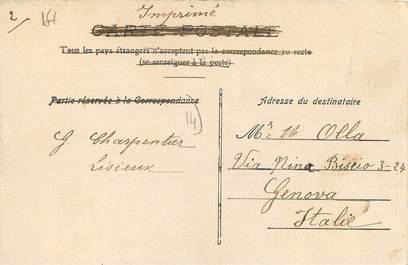 2
Imprimé
CARTE POSTALE
Tous les pays étrangers n'acceptent pas la correspondance au recto
(se renseigner à la poste)
Partie réservée à la Correspondance
Adresse du destinataire
14
G. Charpentier
Lisieux
Mr Olla
Via Nino Biscio 3-24
Genova
Italie